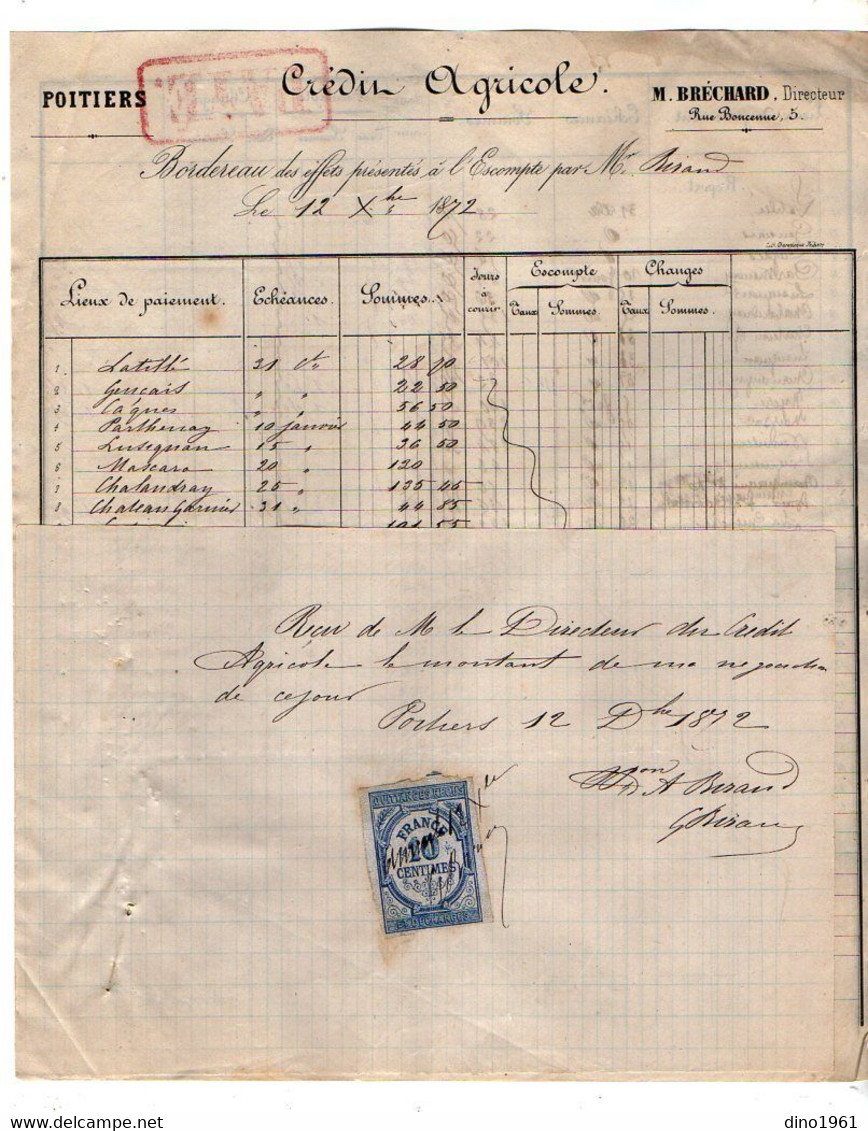 POITIERS
Crédit Agricole.
M. BRÉCHARD, Directeur
Rue Boncenne, 5.
Bordereau des effets présentés à l'Escompte par Mr. Birand
Le 12 Xbre 1872
Lieux de paiement. Echéances. Sommes. Jours à courir. Escompte Changes
Taux Sommes. Taux Sommes.
1 Latillé 31 ct 28 70
2 Gençais " " 22 50
3 Cagnes " " 56 50
4 Parthenay 10 janvier 44 50
5 Lusignan 15 " 36 50
6 Mascara 20 " 120
7 Chalandray 25 " 135 45
8 Chateau Garnier 31 " 44 85
101 55
Reçu de M le Directeur du Crédit
Agricole le montant de ma négociation
de ce jour
Poitiers 12 Dbre 1872
Pon A Birand
G Birand
QUITTANCES REÇUS
FRANCE
10
CENTIMES
dino1961